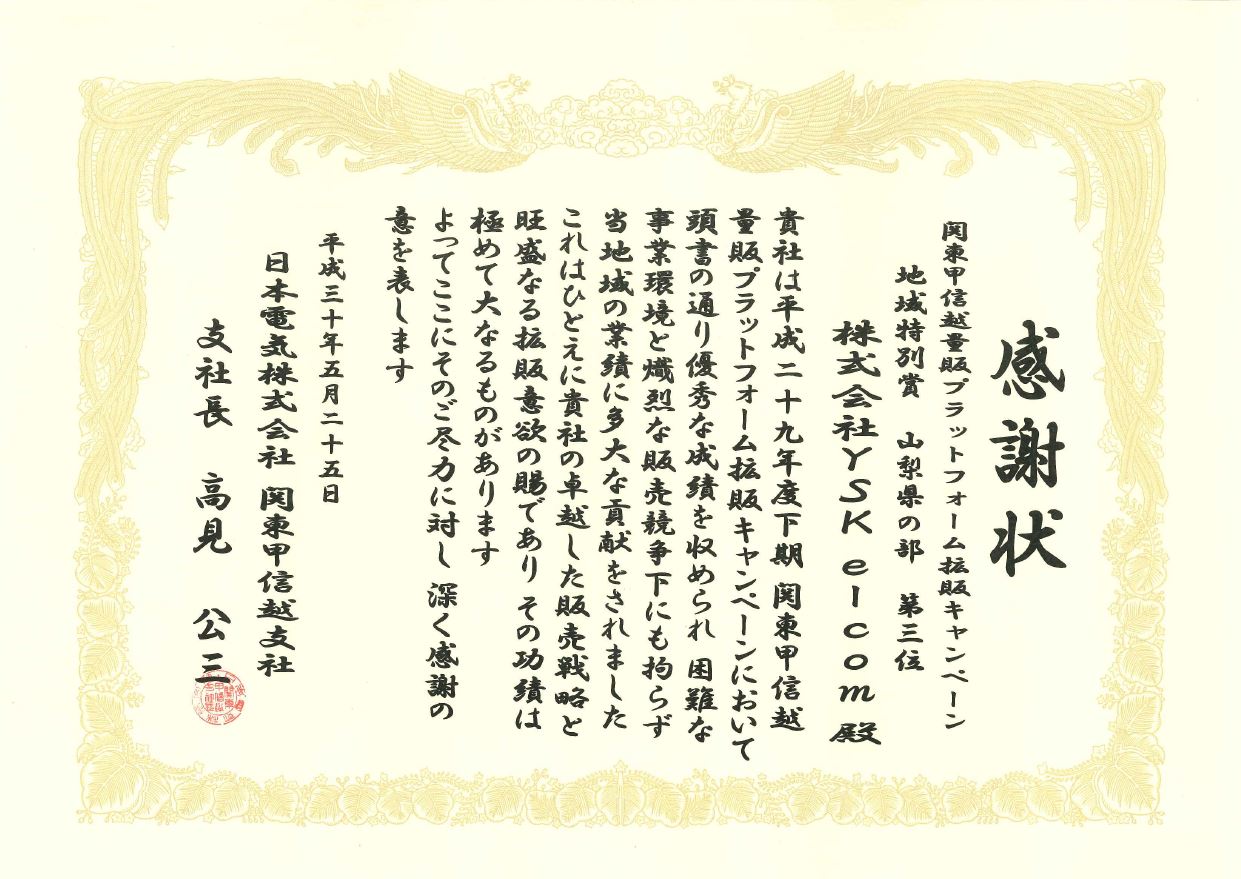 感謝状
関東甲信越量販プラットフォーム拡販キャンペーン
地域特別賞 山梨県の部 第三位
株式会社YSK elcom殿
貴社は平成二十九年度下期 関東甲信越
量販プラットフォーム拡販キャンペーンにおいて
頭書の通り優秀な成績を収められ 困難な
事業環境と熾烈な販売競争下にも拘らず
当地域の業績に多大な貢献をされました
これはひとえに貴社の卓越した販売戦略と
旺盛なる拡販意欲の賜であり その功績は
極めて大なるものがあります
よってここにそのご尽力に対し 深く感謝の
意を表します
平成三十年五月二十五日
日本電気株式会社 関東甲信越支社
支社長 高見 公三